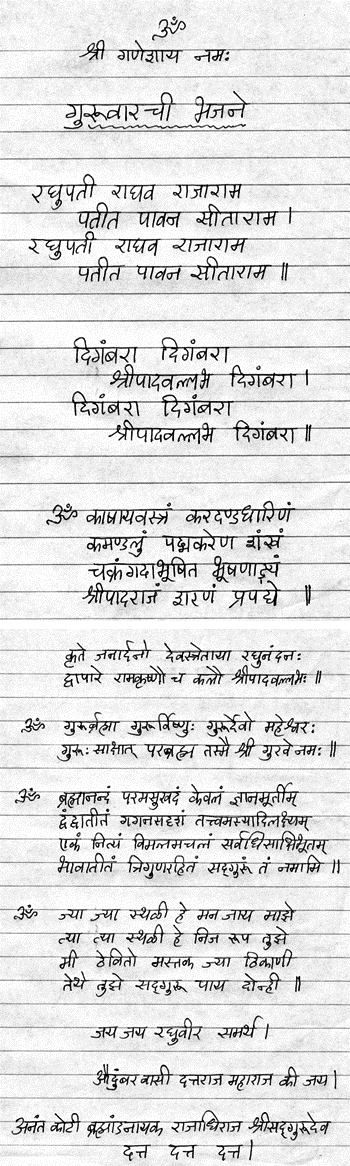 ॐ
श्री गणेशाय नमः
गुरूवारची भजने
रघुपती राघव राजाराम
पतीत पावन सीताराम ।
रघुपती राघव राजाराम
पतीत पावन सीताराम ॥
दिगंबरा दिगंबरा
श्रीपादवल्लभ दिगंबरा ।
दिगंबरा दिगंबरा
श्रीपादवल्लभ दिगंबरा ॥
ॐ काषायवस्त्रं करदण्डधारिणं
कमण्डलुं पद्मकरेण शंखं
चक्रंगदाभूषित भूषणाढ्यं
श्रीपादराजं शरणं प्रपद्ये ॥
कृते जनार्दनो देवस्त्रेताया रघुनंदनः
द्वापारे रामकृष्णौ च कलौ श्रीपादवल्लभः ॥
ॐ गुरूर्ब्रह्मा गुरूर्विष्णुः गुरूर्देवो महेश्वरः
गुरूः साक्षात् परब्रह्म तस्मै श्री गुरवे नमः ॥
ॐ ब्रह्मानन्दं परमसुखदं केवलं ज्ञानमूर्तीम्
द्वंद्वातीतं गगनसदृशं तत्त्वमस्यादिलक्ष्यम्
एकं नित्यं विमलमचलं सर्वधिसाक्षिभूतम्
भावातीतं त्रिगुणरहितं सद्गुरूं तं नमामि ॥
ॐ ज्या ज्या स्थळी हे मन जाय माझे
त्या त्या स्थळी हे निज रूप तुझे
मी ठेवितो मस्तक ज्या ठिकाणी
तेथे तुझे सद्गुरू पाय दोन्ही ॥
जय जय रघुवीर समर्थ ।
औदुंबरवासी दत्तराज महाराज की जय ।
अनंत कोटी ब्रह्मांडनायक राजाधिराज श्रीसद्गुरुदेव
दत्त दत्त दत्त ।